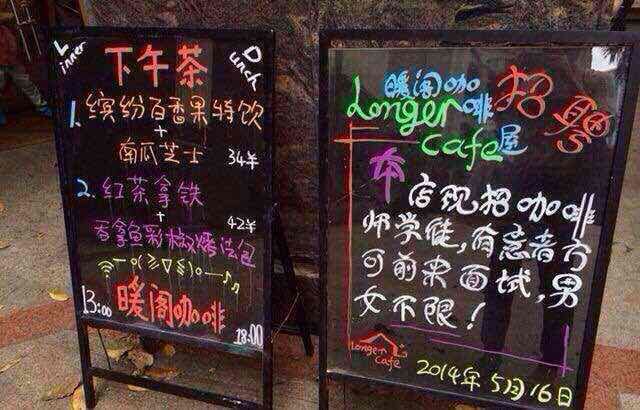 Linner
Dunch
下午茶
1. 缤纷百香果特饮
+
南瓜芝士 34¥
2. 红茶拿铁
+
吞拿鱼彩椒烤法包 42¥
暖阁咖啡
13:00
18:00
暖阁咖啡屋
Longer Cafe
招聘
本店现招咖啡
师学徒,有意者方
可前来面试,男
女不限!
Longer Cafe
2014年5月16日